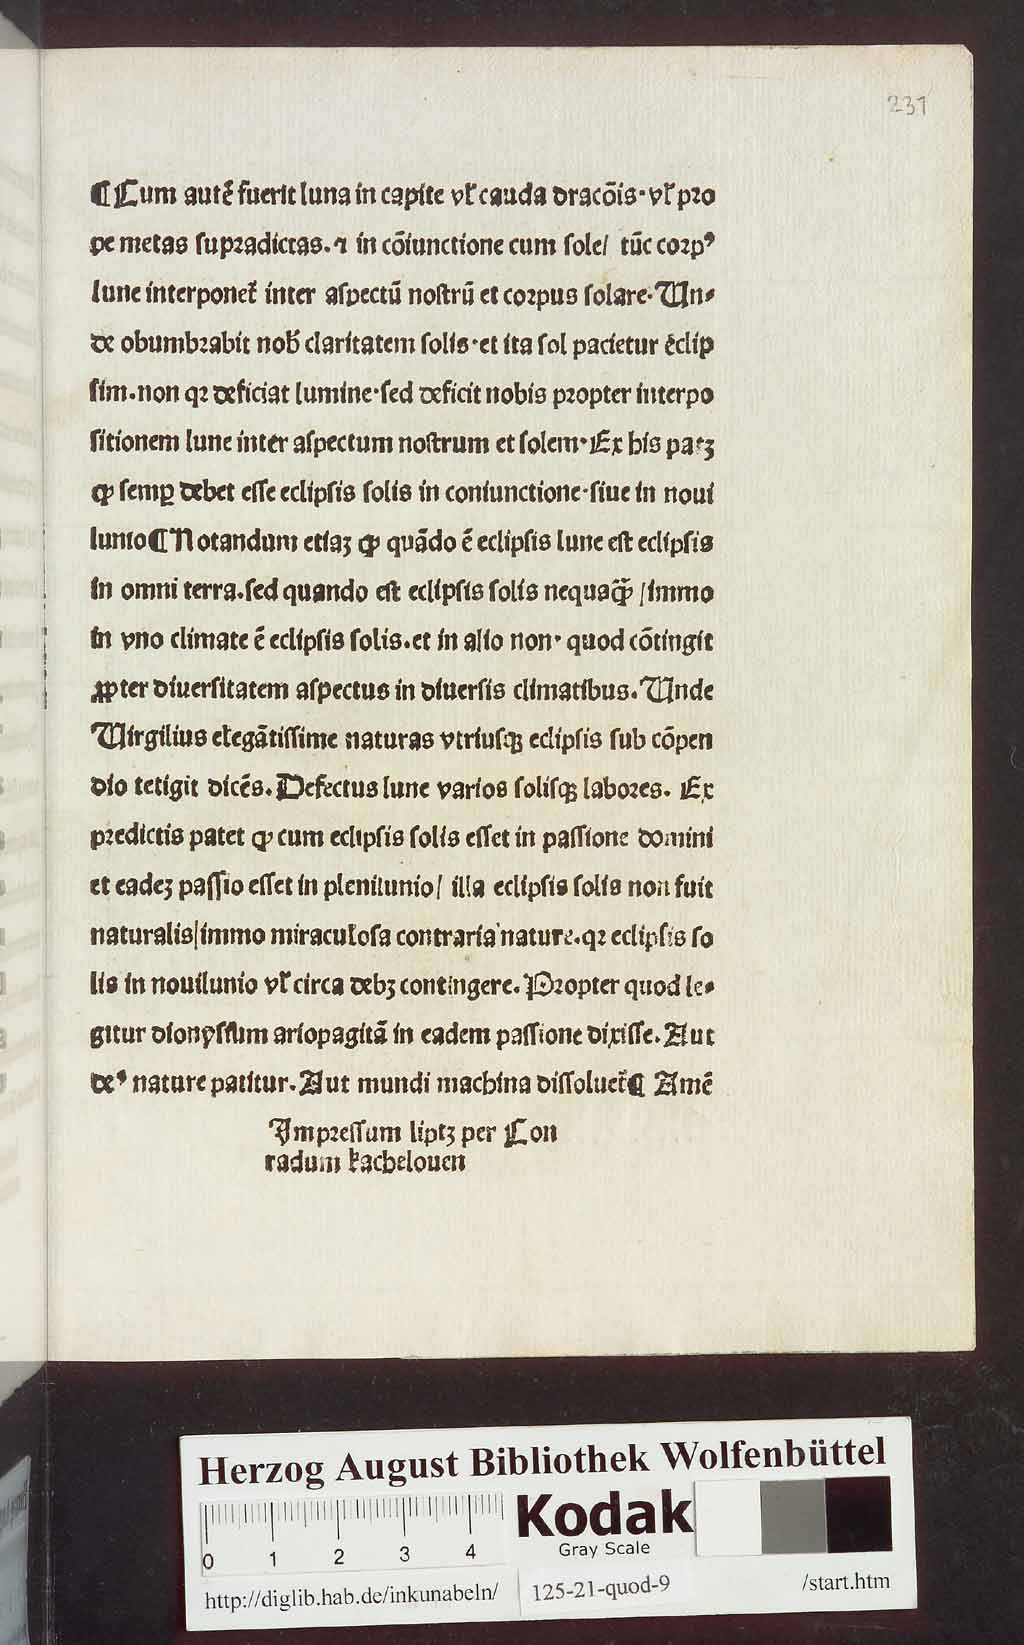 231
¶ Cum autẽ fuerit luna in capite vl̃ cauda dracõis· vl̃ pro
pe metas supradictas. ⁊ in cõiunctione cum sole/ tũc corpꝰ
lune interponet᷑ inter aspectũ nostrũ et corpus solare· Un⸗
de obumbrabit nob̃ claritatem solis· et ita sol pacietur eclip
sim. non qꝛ deficiat lumine· sed deficit nobis propter interpo
sitionem lune inter aspectum nostrum et solem· Ex his patꝫ
ꝙ semꝑ debet esse eclipsis solis in coniunctione· siue in noui
lunio ¶ Notandum etiaꝫ ꝙ quãdo ẽ eclipsis lune est eclipsis
in omni terra. sed quando est eclipsis solis nequaꝙ̃ /immo
in vno climate ẽ eclipsis solis. et in alio non· quod cõtingit
ꝓpter diuersitatem aspectus in diuersis climatibus. Unde
Virgilius elegãtissime naturas vtriusqꝫ eclipsis sub cõpen
dio tetigit dicẽs. Defectus lune varios solisqꝫ labores. Ex
predictis patet ꝙ cum eclipsis solis esset in passione domini
et eadeꝫ passio esset in plenilunio/ illa eclipsis solis non fuit
naturalis/ immo miraculosa contraria nature. qꝛ eclipsis so
lis in nouilunio vl̃ circa debꝫ contingere. Propter quod le⸗
gitur dionysium ariopagitã in eadem passione dixisse. Aut
deꝰ nature patitur. Aut mundi machina dissoluet᷑ ¶ Amẽ
Impressum liptꝫ per Con
radum kachelouen
Herzog August Bibliothek Wolfenbüttel
0 1 2 3 4
Kodak
Gray Scale
http://diglib.hab.de/inkunabeln/ 125-21-quod-9 /start.htm